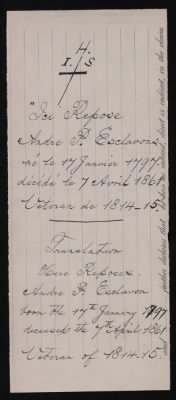 H.
I. S
"Ici Repose
Andre P. Esclavon,
né le 17 Janvier 1797,
décédé le 7 Avril 1861
Veteran de 1814-15.
Translation
Here Reposes.
Andre P. Esclavon
born the 17th January 1797
deceased the 7th April 1861
Veteran of 1814.15.
further declares that